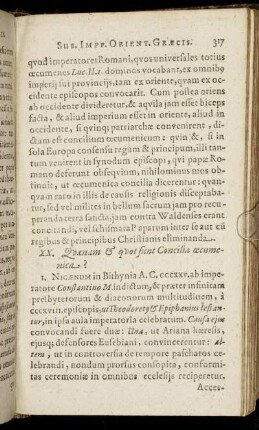 SUB. IMPP. ORIENT. GRÆCIS. 317
qvod imperatores Romani, qvos universales totius
œcumenes Luc. II.1. dominos vocabant, ex omnibꝰ
imperij sui provincijs, tam ex oriente, qvam ex oc-
cidente episcopos convocarit. Cum postea oriens
ab occidente divideretur, & aqvila jam esset biceps
facta, & aliud imperium esset in oriente, aliud in
occidente, si qvinqꝫ patriarchæ convenirent, di-
ctam est concilium œcumenicum: qvin &, si in
sola Europa consensu regum & principum, illi tan-
tum venirent in synodum episcopi, qvi papæ Romano
deferunt obseqvium, nihilominus mos ob-
tinuit, ut œcumenica concilia dicerentur: qvan-
qvam raro in illis de causis religionis disceptaba-
tur, sed vel milites in bellum sacrum jam pro recu-
peranda terra sancta, jam contra Waldenses erant
conciendi, vel schismata Paparum inter se aut cũ
regibus & principibus Christianis eliminanda.
XX. Qvænam & qvot sunt Concilia œcume-
nica?
1. NICÆNUM in Bithynia A. C. CCCXXV. ab impe-
ratore Constantino M. indictum, & præter infinitam
presbyterorum & diaconorum multitudinem, à
CCCXVIII. episcopis, ut Theodoretꝰ & Epiphanius testan-
tur, in ipsa aula imperatoria celebratum. Causa ejus
convocandi fuere duæ: Una, ut Ariana hæresis,
ejusqꝫ defensores Eusebiani, convincerentur: al-
tera, ut in controversia de tempore paschatos ce-
lebrandi, nondum prorsus consopita, conformi-
tas ceremoniæ in omnibus ecclesijs reciperetur.
Acces-